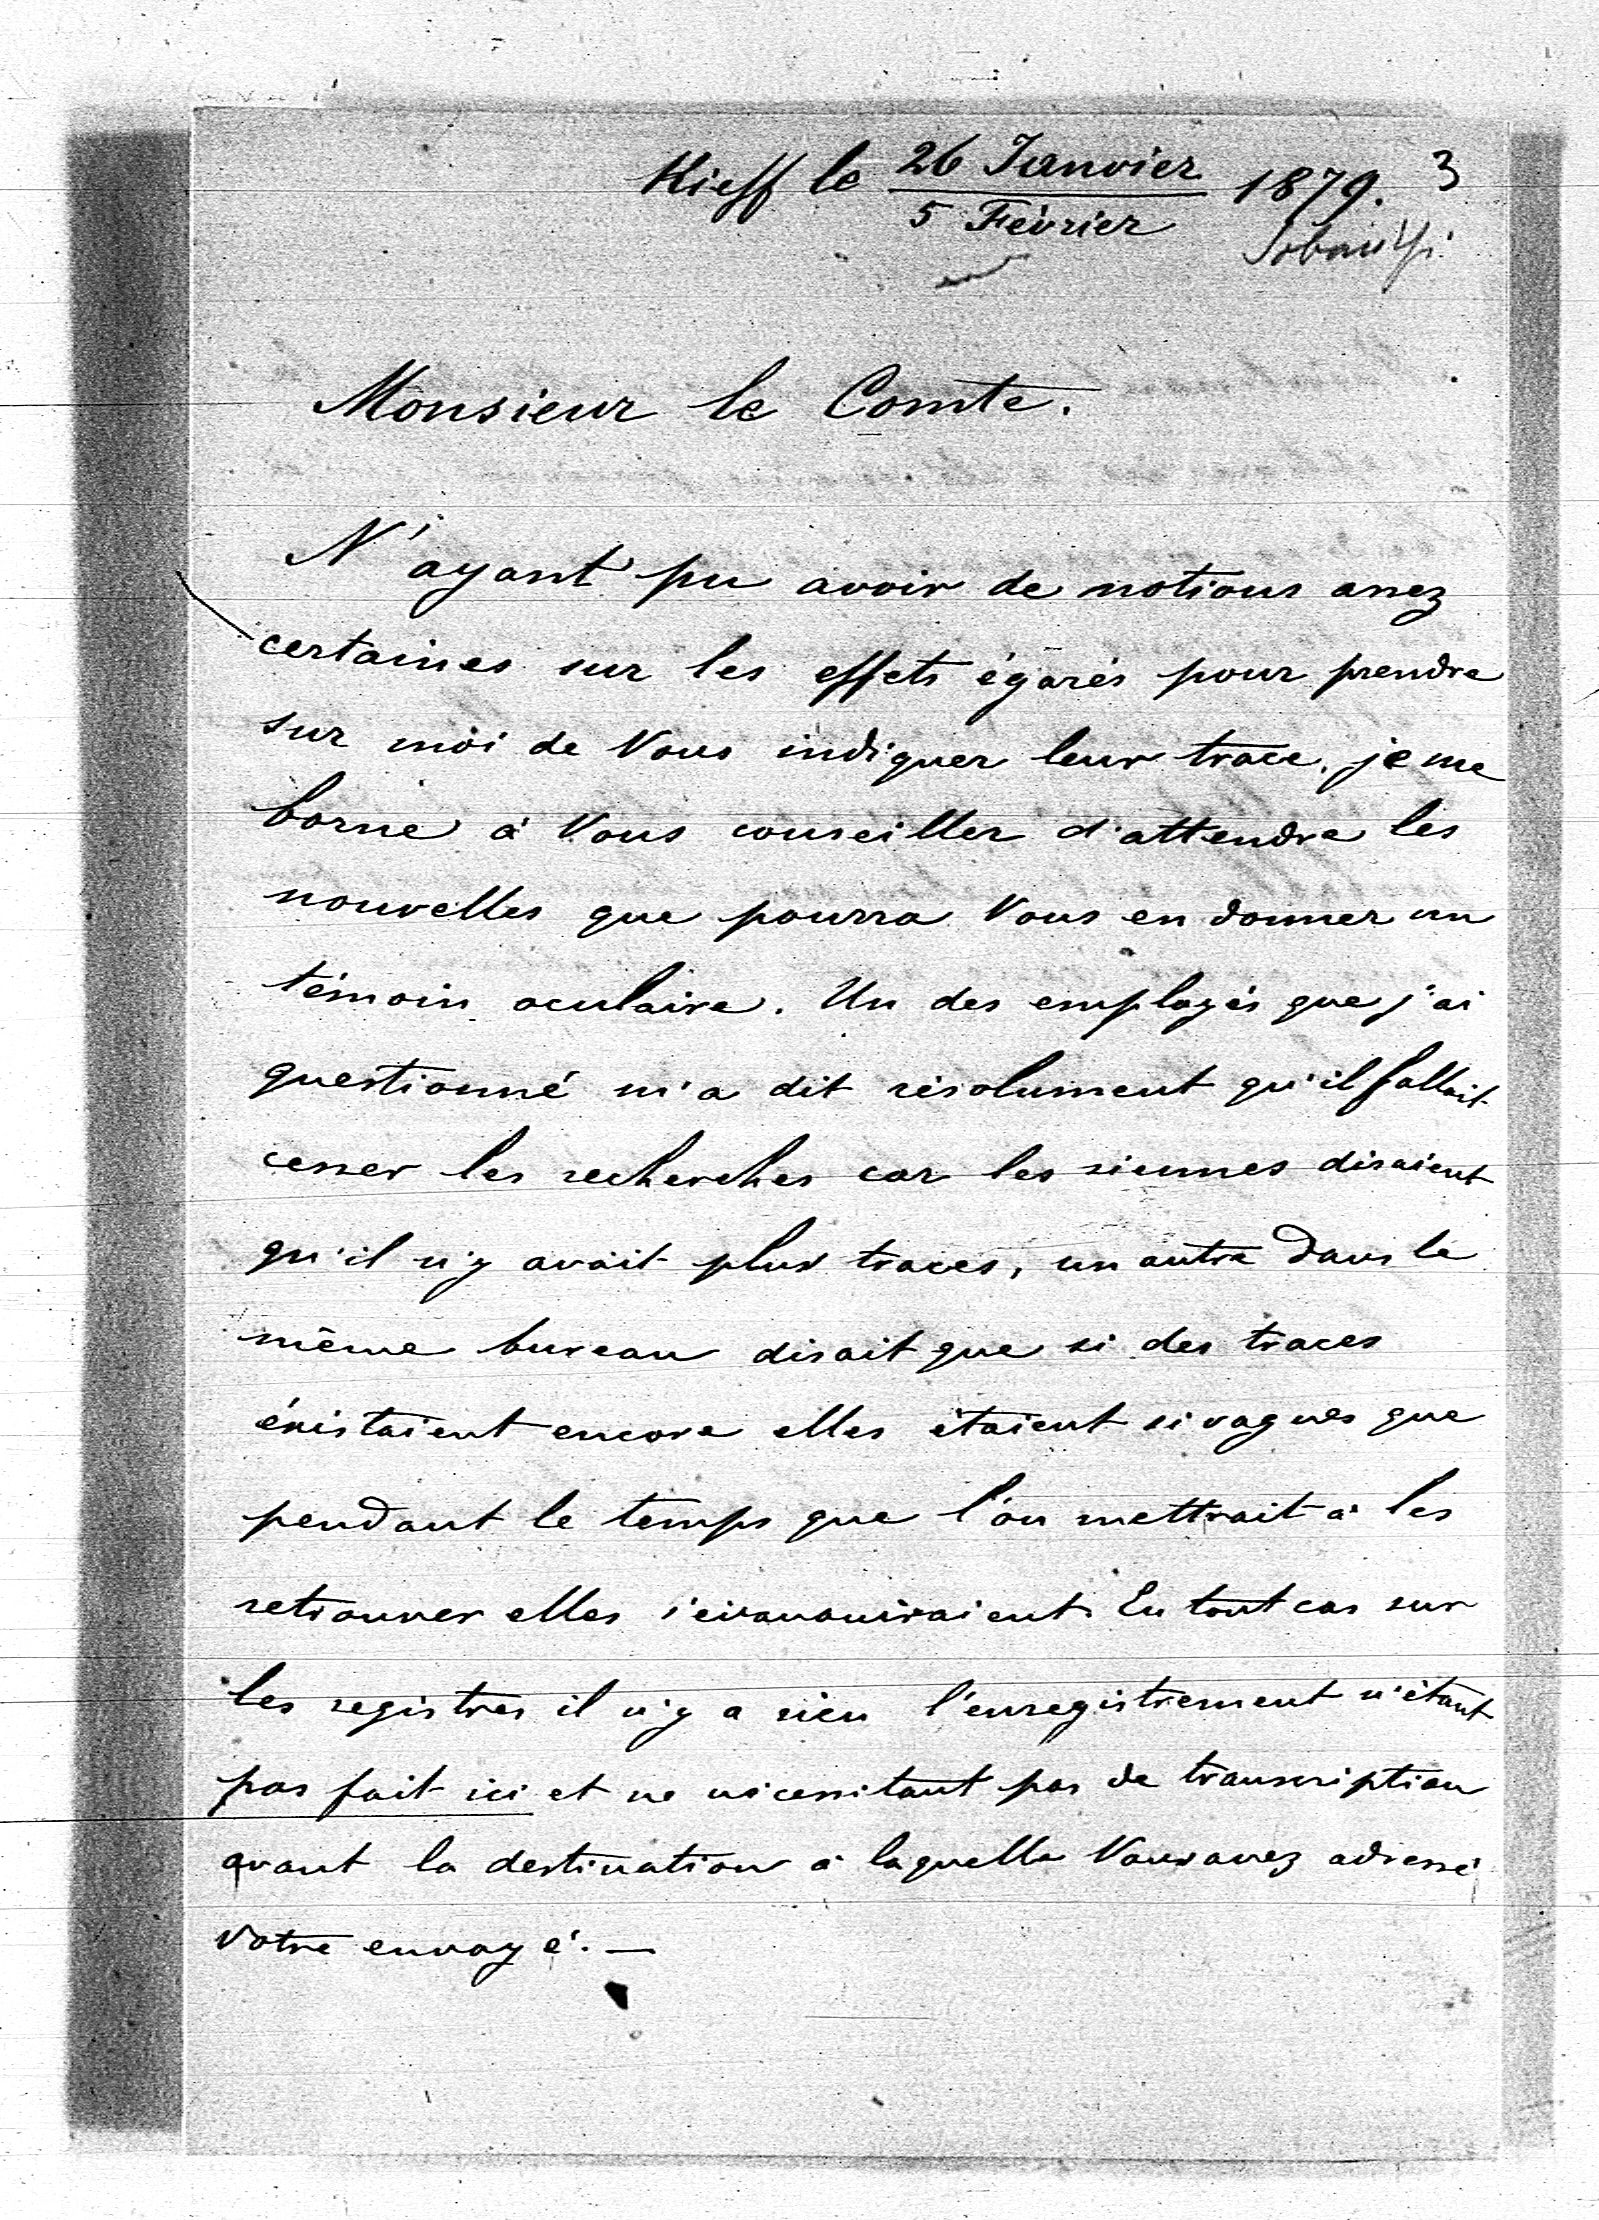 Kieff le 26 Janvier 1879. 3
5 Février
Monsieur le Comte.
N'ayant pu avoir de notions assez
certaines sur les effets égarés pour prendre
sur moi de Vous indiquer leur trace, je me
borne à Vous conseiller d'attendre les
nouvelles que pourra Vous en donner un
témoin oculaire. Un des employés que j'ai
questionné m'a dit résolument qu'il fallait
cesser les recherches car les siennes disaient
qu'il n'y avait plus traces, un autre dans le
même bureau disait que si des traces
éxistaient encore elles étaient si vagues que
pendant le temps que l'on mettrait à les
retrouver elles s'évanouiraient. En tout cas sur
les registres il n'y a rien l'enregistrement n'étant
pas fait ici et ne nécessitant pas de transcription
avant la destination à laquelle Vous avez adressé
votre envoyé. —